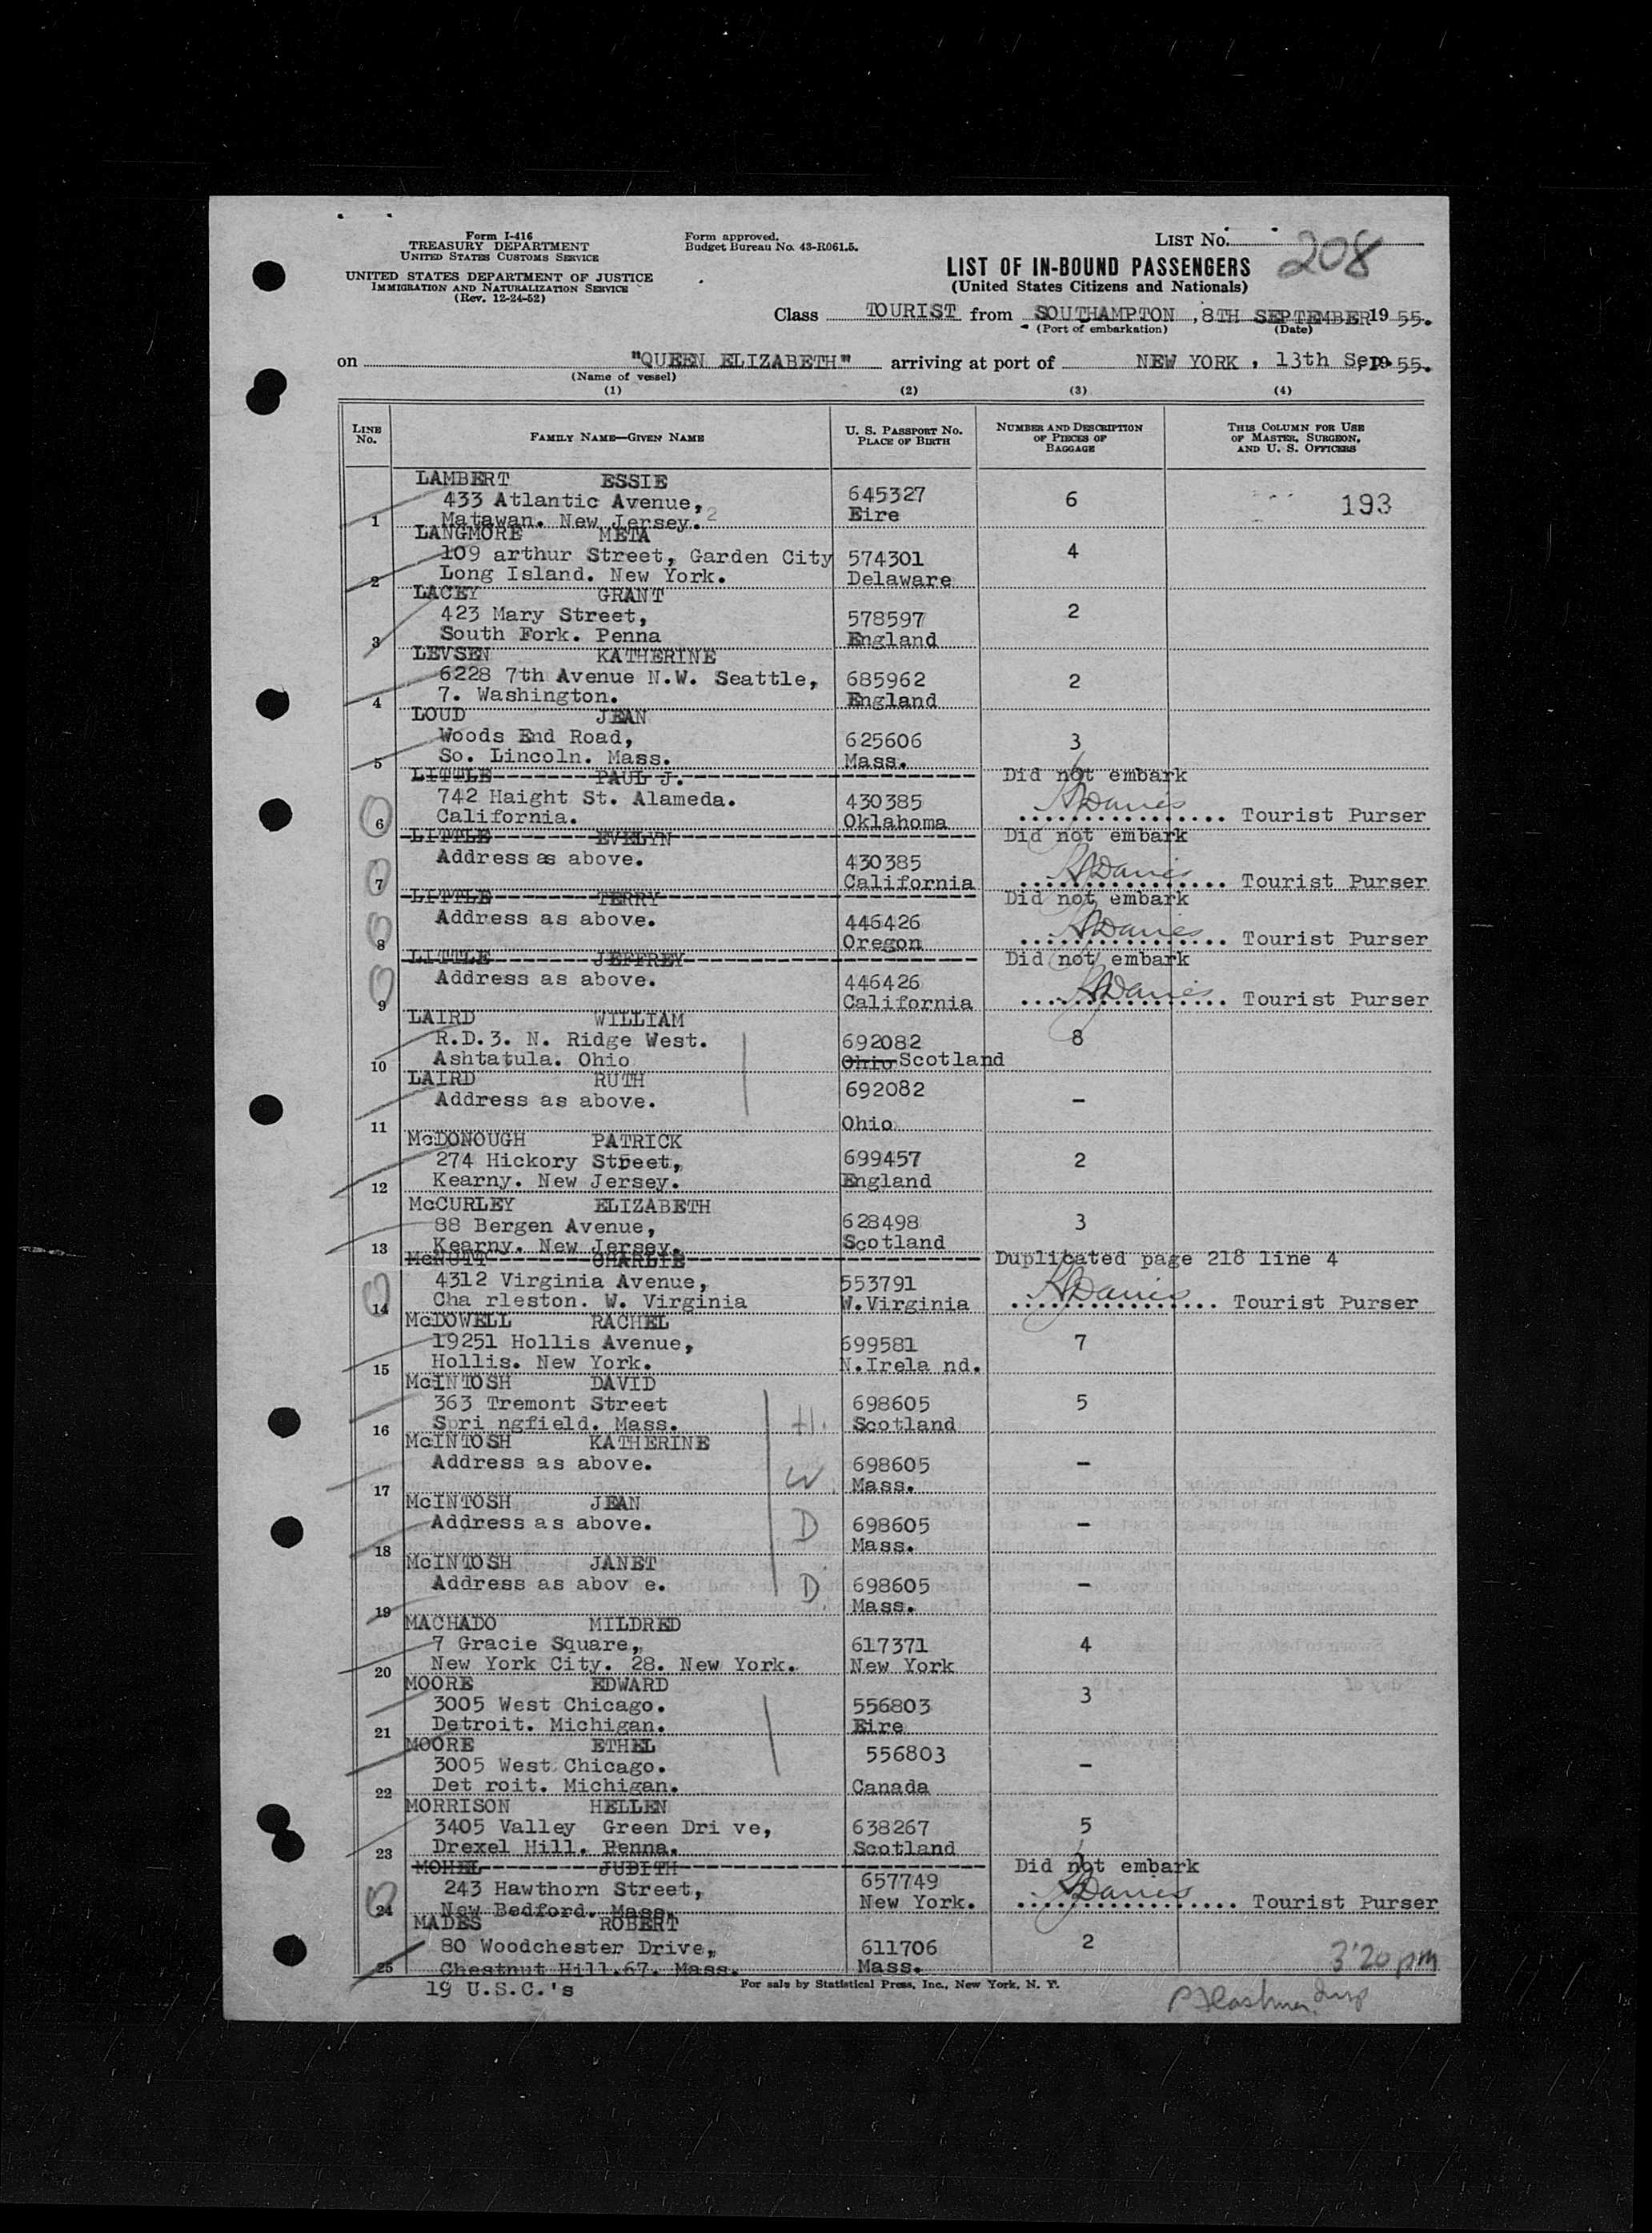 Form I-416
TREASURY DEPARTMENT
UNITED STATES CUSTOMS SERVICE
UNITED STATES DEPARTMENT OF JUSTICE
IMMIGRATION AND NATURALIZATION SERVICE
(Rev. 12-24-52)
Form approved.
Budget Bureau No. 43-R061.5.
LIST No. 208
LIST OF IN-BOUND PASSENGERS
(United States Citizens and Nationals)
Class TOURIST from SOUTHAMPTON ,8TH SEPTEMBER 19 55.
(Port of embarkation) (Date)
on "QUEEN ELIZABETH" arriving at port of NEW YORK , 13th Sep. 19 55.
(Name of vessel)
(1) (2) (3) (4)
LINE No. FAMILY NAME—GIVEN NAME U. S. PASSPORT No. PLACE OF BIRTH NUMBER AND DESCRIPTION OF PIECES OF BAGGAGE THIS COLUMN FOR USE OF MASTER, SURGEON, AND U. S. OFFICERS
LAMBERT ESSIE
433 Atlantic Avenue, 645327 6 193
1 Matawan. New Jersey. 2 Eire
LANGMORE META
109 arthur Street, Garden City 574301 4
2 Long Island. New York. Delaware
LACEY GRANT
423 Mary Street, 578597 2
3 South Fork. Penna England
LEVSEN KATHERINE
6228 7th Avenue N.W. Seattle, 685962 2
4 7. Washington. England
LOUD JEAN
Woods End Road, 625606 3
5 So. Lincoln. Mass. Mass.
LITTLE PAUL J. Did not embark
742 Haight St. Alameda. 430385 Davies
6 California. Oklahoma Tourist Purser
LITTLE EVELYN Did not embark
Address as above. 430385 Davies
7 California Tourist Purser
LITTLE TERRY Did not embark
Address as above. 446426 Davies
8 Oregon Tourist Purser
LITTLE JEFFREY Did not embark
Address as above. 446426 Davies
9 California Tourist Purser
LAIRD WILLIAM
R.D.3. N. Ridge West. 692082 8
10 Ashtatula. Ohio Ohio Scotland
LAIRD RUTH 692082
Address as above. -
11 Ohio
McDONOUGH PATRICK
274 Hickory Street, 699457 2
12 Kearny. New Jersey. England
McCURLEY ELIZABETH
88 Bergen Avenue, 628498 3
13 Kearny. New Jersey. Scotland
McNUTT CHARLIE Duplicated page 218 line 4
4312 Virginia Avenue, 553791 Davies
14 Cha rleston. W. Virginia W.Virginia Tourist Purser
McDOWELL RACHEL
19251 Hollis Avenue, 699581 7
15 Hollis. New York. N.Irela nd.
McINTOSH DAVID
363 Tremont Street 698605 5
16 Spri ngfield. Mass. H. Scotland
McINTOSH KATHERINE
Address as above. W 698605 -
17 Mass.
McINTOSH JEAN
Address as above. D 698605 -
18 Mass.
McINTOSH JANET
Address as abov e. D. 698605 -
19 Mass.
MACHADO MILDRED
7 Gracie Square, 617371 4
20 New York City. 28. New York. New York
MOORE EDWARD
3005 West Chicago. 556803 3
21 Detroit. Michigan. Eire
MOORE ETHEL
3005 West Chicago. 556803 -
22 Det roit. Michigan. Canada
MORRISON HELLEN
3405 Valley Green Dri ve, 638267 5
23 Drexel Hill. Penna. Scotland
MOHEL JUDITH Did not embark
243 Hawthorn Street, 657749 Davies
24 New Bedford. Mass. New York. Tourist Purser
MADES ROBERT
80 Woodchester Drive, 611706 2
25 Chestnut Hill.67. Mass. Mass. 3'20 pm
19 U.S.C.'s For sale by Statistical Press, Inc., New York, N. Y.